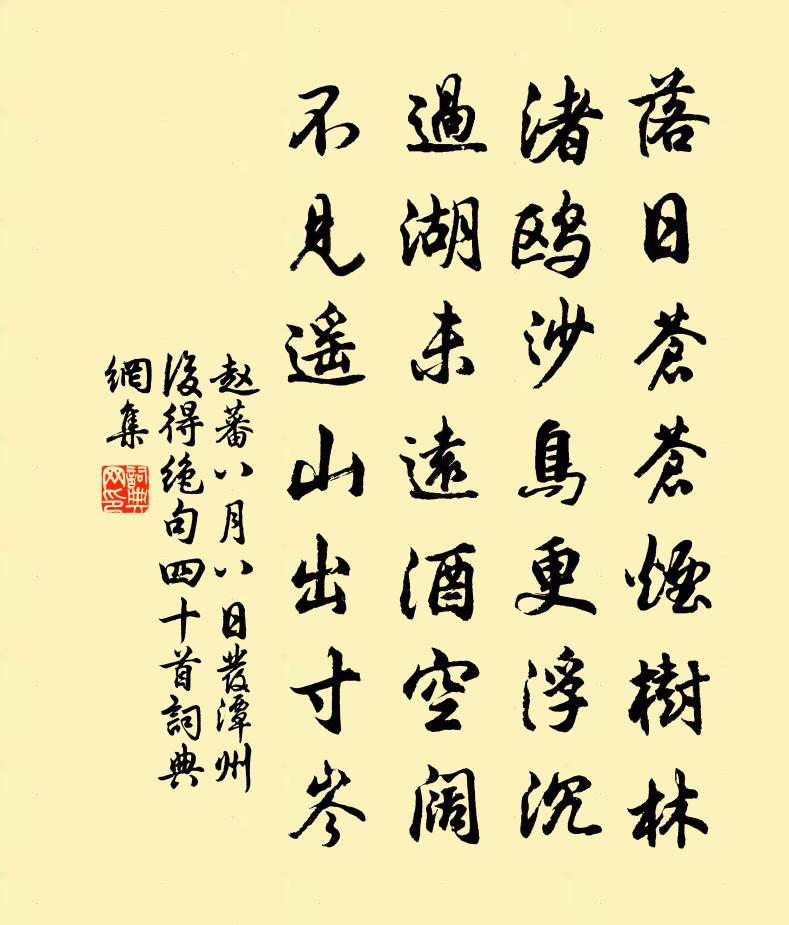 落日蒼蒼煙樹林
渚鴎沙鳥更浮沉
過湖未遠酒空闊
不見遥山出寸岑
赵蕃八月八日發潭州
後得绝句四十首詞典
網集
詞典网印